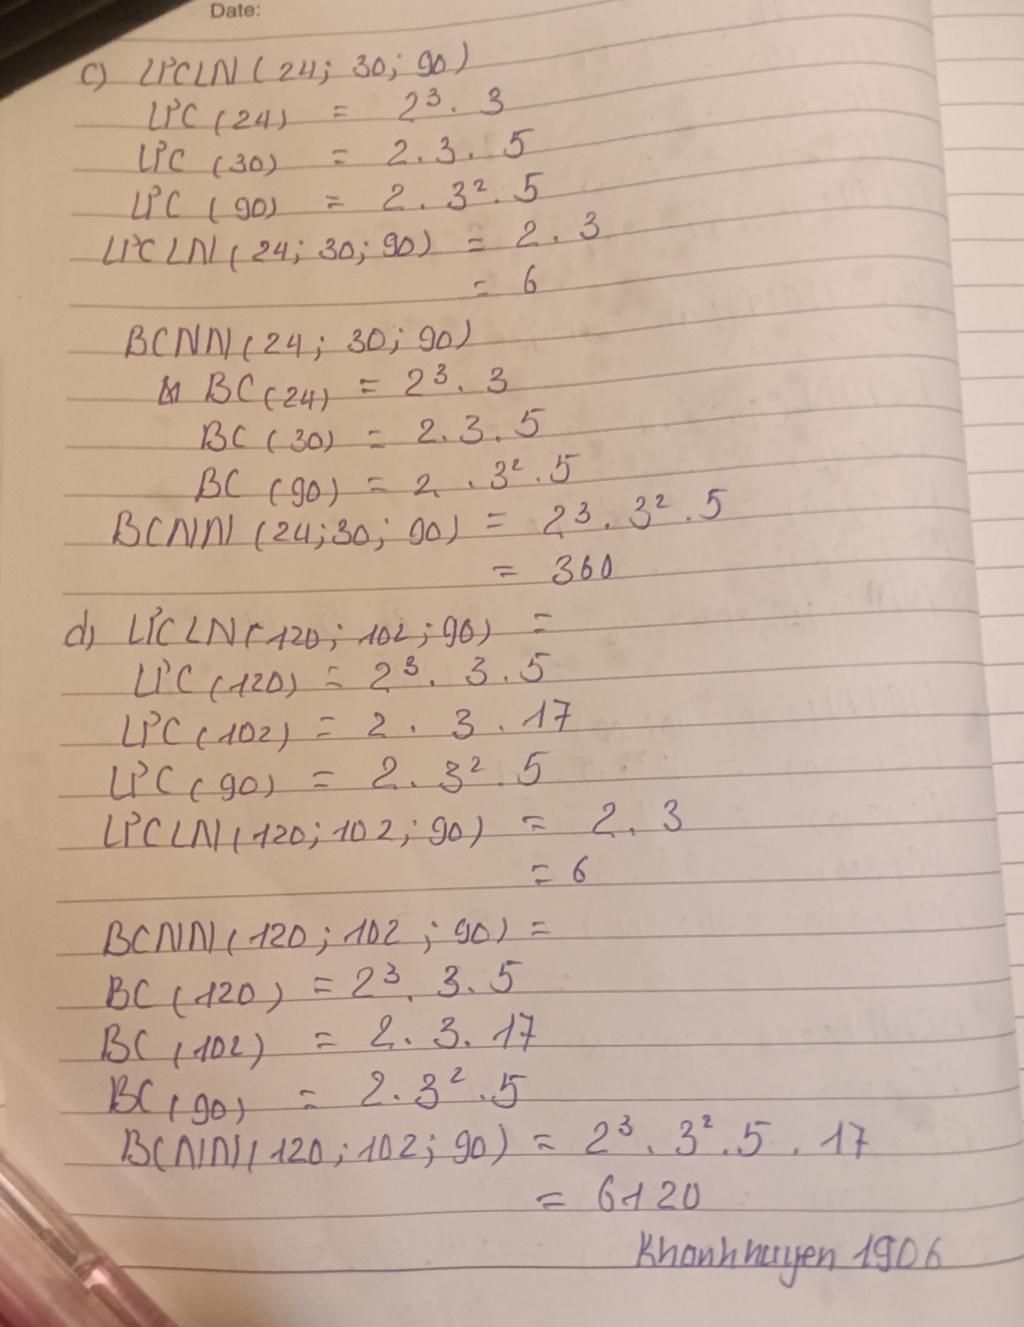 Date:
c) ƯCLN (24; 30; 90)
ƯC (24) = 2³. 3
ƯC (30) = 2. 3. 5
ƯC (90) = 2. 3². 5
ƯCLN (24; 30; 90) = 2. 3
= 6
BCNN (24; 30; 90)
BC (24) = 2³. 3
BC (30) = 2. 3. 5
BC (90) = 2. 3². 5
BCNN (24; 30; 90) = 2³. 3². 5
= 360
d) ƯCLN (120; 102; 90) =
ƯC (120) = 2³. 3. 5
ƯC (102) = 2. 3. 17
ƯC (90) = 2. 3². 5
ƯCLN (120; 102; 90) = 2. 3
= 6
BCNN (120; 102; 90) =
BC (120) = 2³. 3. 5
BC (102) = 2. 3. 17
BC (90) = 2. 3². 5
BCNN (120; 102; 90) = 2³. 3². 5. 17
= 6120
Khanhhuyen 1906